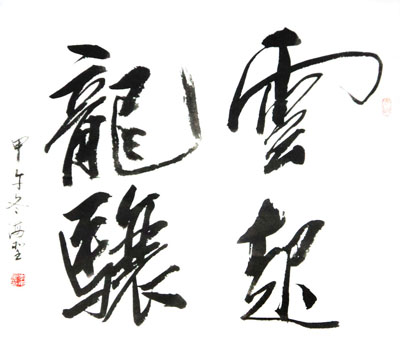 雲起
龍驤
甲午冬